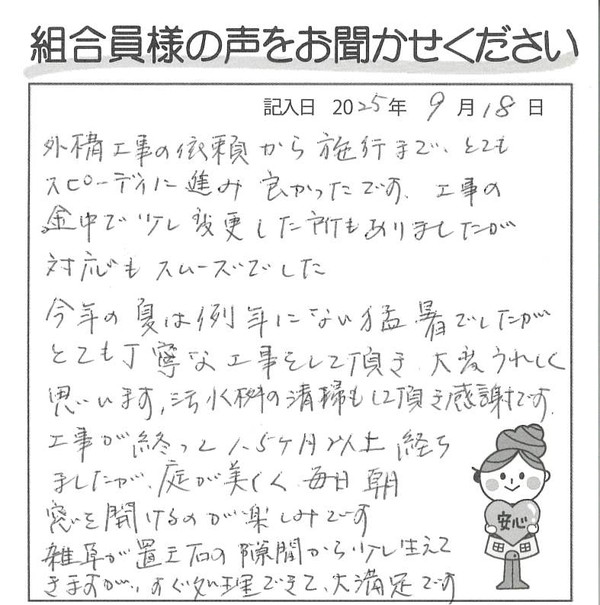 組合員様の声をお聞かせください
記入日 2025年 9月18日
外構工事の依頼から施行まで、とても
スピーディに進み良かったです。工事の
途中で少し変更した所もありましたが
対応もスムーズでした
今年の夏は例年にない猛暑でしたが
とても丁寧な工事をして頂き、大変うれしく
思います。汚水桝の清掃もして頂き感謝です。
工事が終って1.5ヶ月以上経ち
ましたが、庭が美しく毎日朝
窓を開けるのが楽しみです
雑草が置き石の隙間から少し生えて
きますが、すぐ処理できて、大満足です
安心